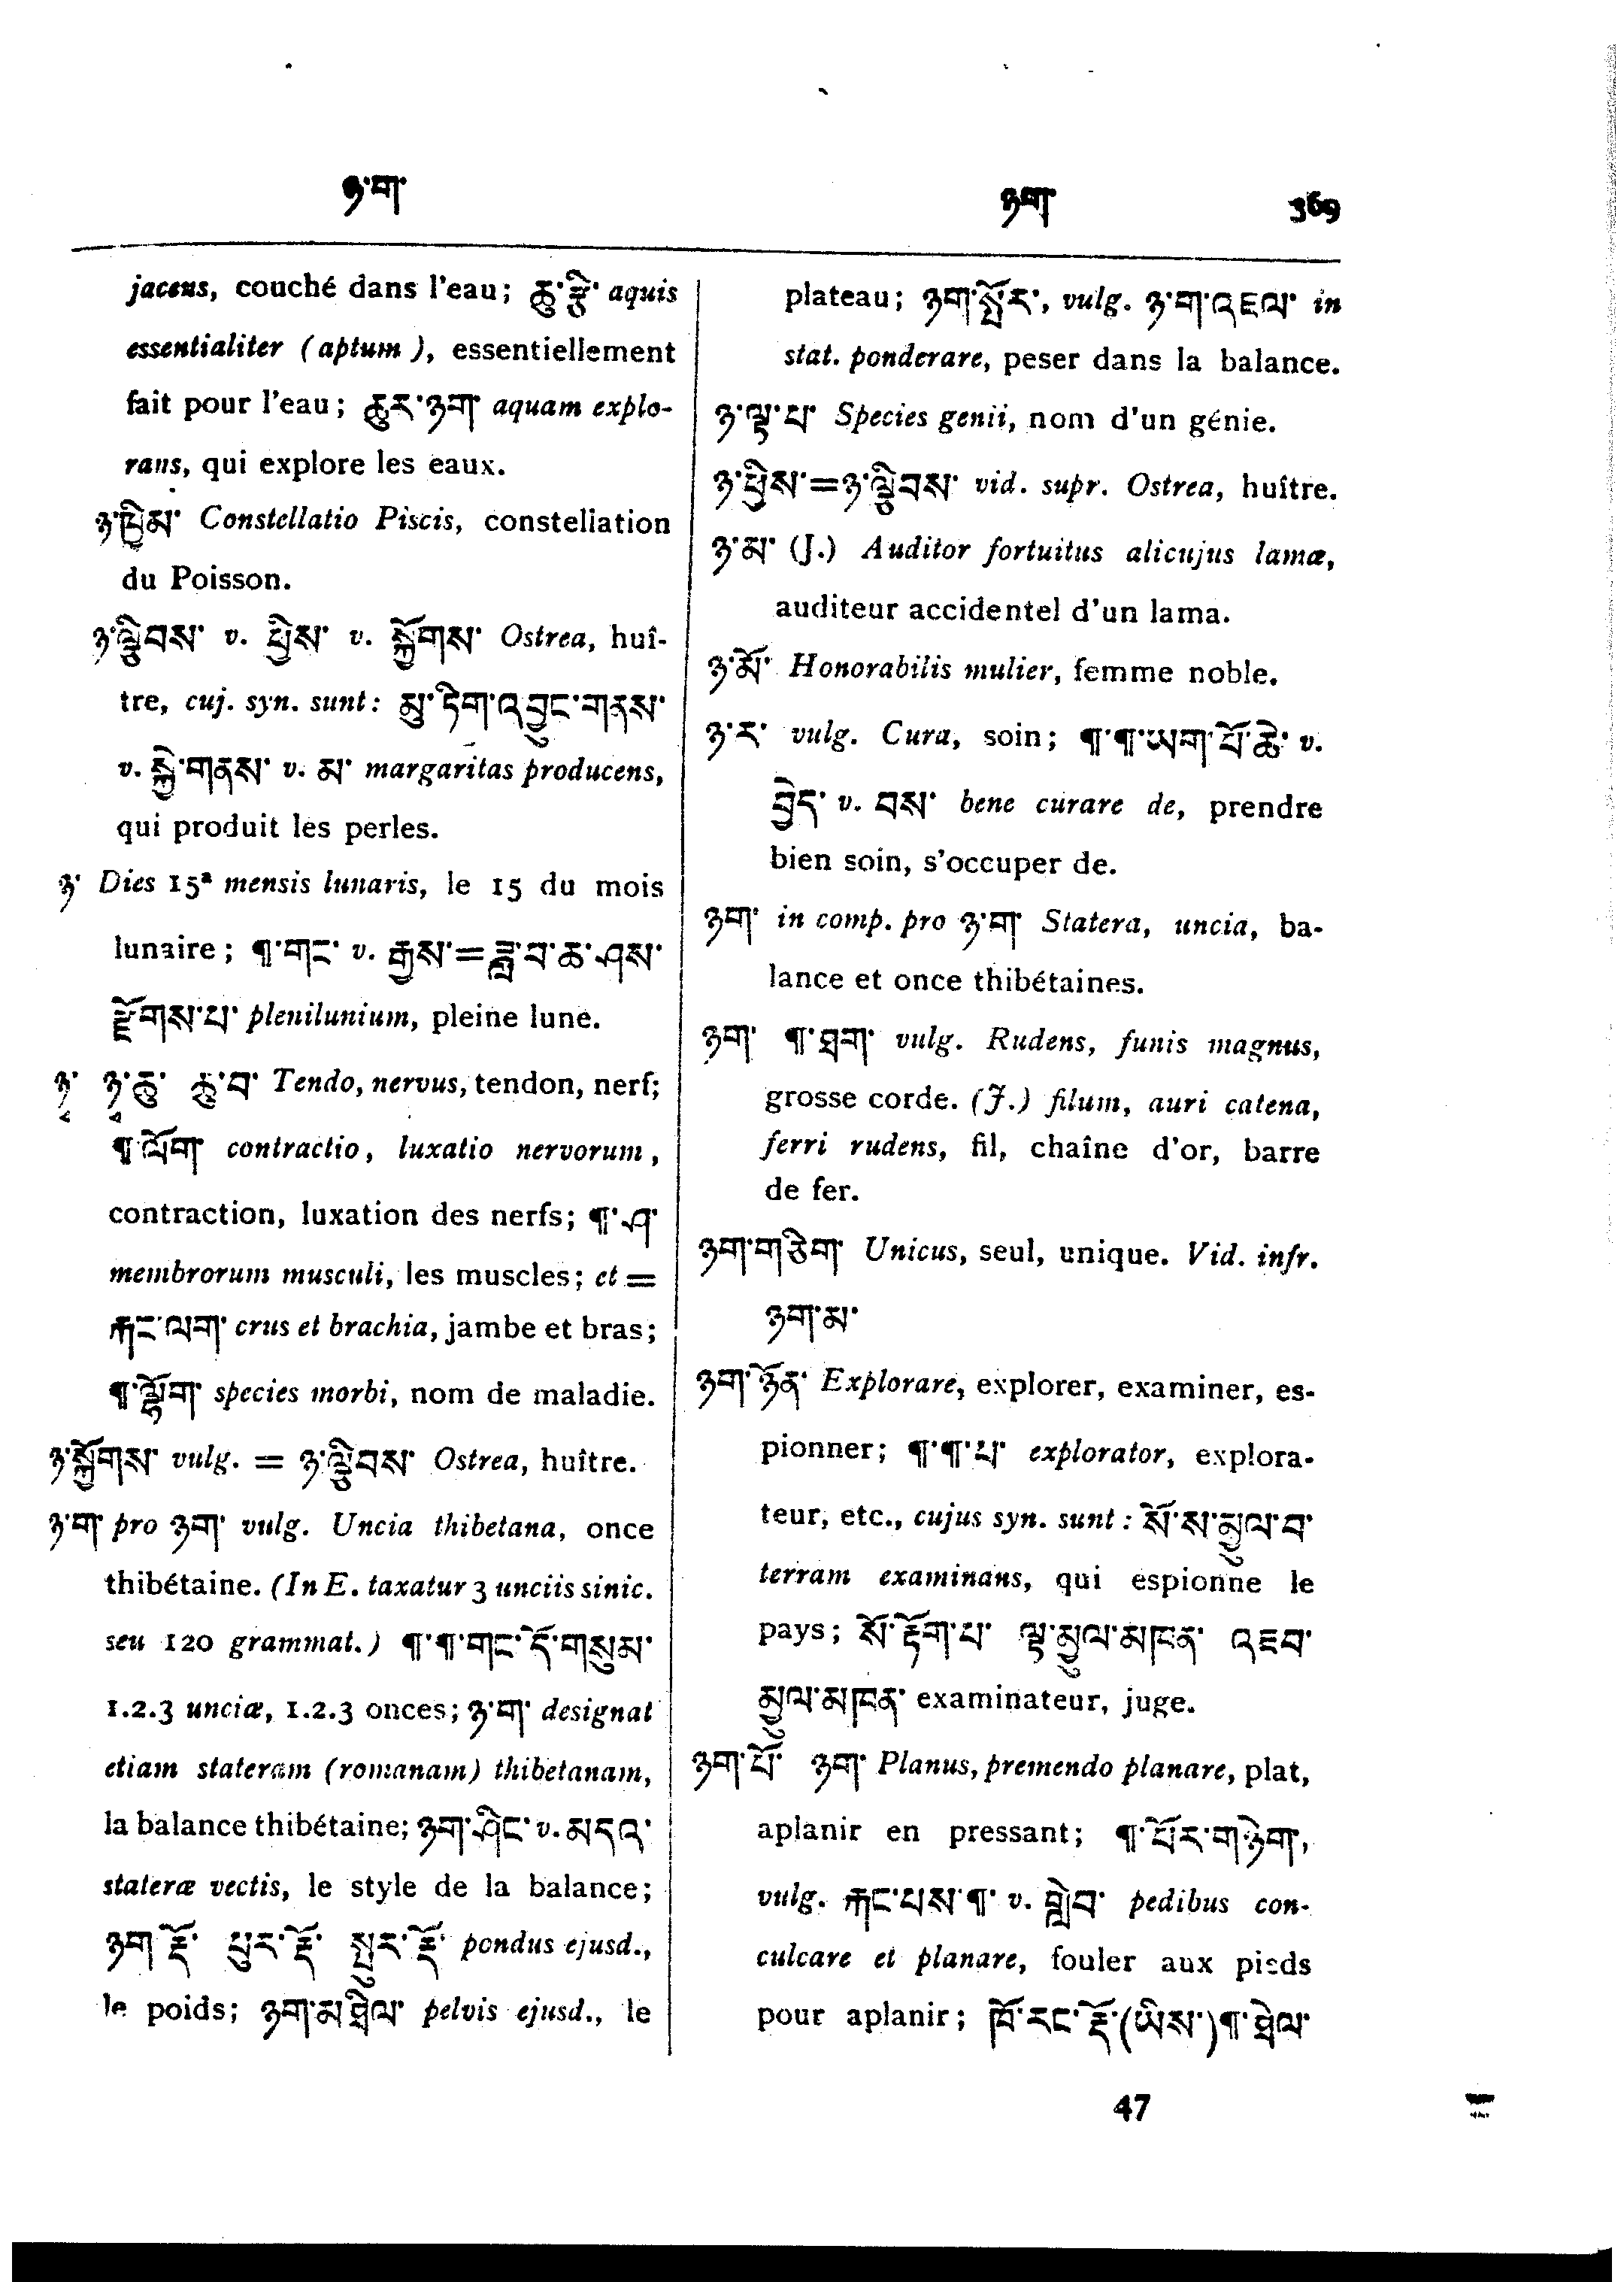 ཉ་ག་
ཉག་ 369
jacens, couché dans l'eau; ཆུ་རྩི་ aquis
essentialiter (aptum), essentiellement
fait pour l'eau; ཆུར་ཉག་ aquam explo-
rans, qui explore les eaux.
ཉ་ཁྲིམ་ Constellatio Piscis, constellation
du Poisson.
ཉ་ལྕིབས་ v. ཕྱིས་ v. སྐྱོགས་ Ostrea, huî-
tre, cuj. syn. sunt: མུ་ཏིག་འབྱུང་གནས་
v. སྐྱེ་གནས་ v. མ་ margaritas producens,
qui produit les perles.
ཉ་ Dies 15ª mensis lunaris, le 15 du mois
lunaire; ¶་གང་ v. རྒྱས་=ཟླ་བ་ཆ་ཤས་
རྫོགས་པ་ plenilunium, pleine lune.
ཉ་ ཉ་ཆུ་ རྩ་བ་ Tendo, nervus, tendon, nerf;
¶་ལོག་ contractio, luxatio nervorum,
contraction, luxation des nerfs; ¶་ཤ་
membrorum musculi, les muscles; et =
རྐང་ལག་ crus et brachia, jambe et bras;
¶་ལྷོག་ species morbi, nom de maladie.
ཉ་སྐྱོགས་ vulg. = ཉ་ལྕིབས་ Ostrea, huître.
ཉ་ག་ pro ཉག་ vulg. Uncia thibetana, once
thibétaine. (In E. taxatur 3 unciis sinic.
seu 120 grammat.) ¶་¶་གང་དོ་གསུམ་
1.2.3 unciæ, 1.2.3 onces; ཉ་ག་ designat
etiam stateram (romanam) thibetanam,
la balance thibétaine; ཉག་ཤིང་ v. མདའ་
stateræ vectis, le style de la balance;
ཉག་རྡོ་ པུར་རྡོ་ སྤུར་རྡོ་ pondus ejusd.,
le poids; ཉག་མཐིལ་ pelvis ejusd., le
plateau; ཉག་སྤོར་, vulg. ཉ་ག་འཇལ་ in
stat. ponderare, peser dans la balance.
ཉ་ལྟ་པ་ Species genii, nom d'un génie.
ཉ་ཕྱིས་=ཉ་ལྕིབས་ vid. supr. Ostrea, huître.
ཉ་མ་ (J.) Auditor fortuitus alicujus lamæ,
auditeur accidentel d'un lama.
ཉ་མོ་ Honorabilis mulier, femme noble.
ཉ་ར་ vulg. Cura, soin; ¶་¶་ཡག་པོ་ཆེ་ v.
བྱེད་ v. བས་ bene curare de, prendre
bien soin, s'occuper de.
ཉག་ in comp. pro ཉ་ག་ Statera, uncia, ba-
lance et once thibétaines.
ཉག་ ¶་ཐག་ vulg. Rudens, funis magnus,
grosse corde. (J.) filum, auri catena,
ferri rudens, fil, chaîne d'or, barre
de fer.
ཉག་གཅིག་ Unicus, seul, unique. Vid. infr.
ཉག་མ་
ཉག་ཉོན་ Explorare, explorer, examiner, es-
pionner; ¶་¶་པ་ explorator, explora-
teur, etc., cujus syn. sunt: སོ་ས་མྱུལ་བ་
terram examinans, qui espionne le
pays; སོ་རྟོག་པ་ ལྟ་མྱུལ་མཁན་ འཇབ་
མྱུལ་མཁན་ examinateur, juge.
ཉག་པོ་ ཉག་ Planus, premendo planare, plat,
aplanir en pressant; ¶་པོར་གཉེག་,
vulg. རྐང་པས་¶་ v. གླེབ་ pedibus con-
culcare et planare, fouler aux pieds
pour aplanir; ཁོ་རང་རྡོ་(ཡིས་)¶་ཐེལ་
47